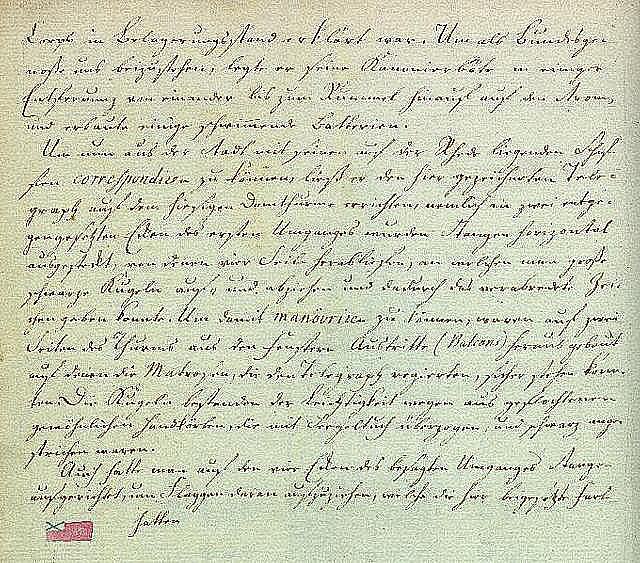 Corps in Belagerungsstand erklärt war. Um als Bundesge-
nosse uns beizustehen, legte er seine Kanonierböte in einiger
Entfernung von einander bis zum Rummel hinauf auf den Strom,
und erbaute einige schwimmende Batterien.
Um nun aus der Stadt mit seinen auf der Rhede liegenden Schif-
fen correspondiren zu können, ließ er den hier gezeichneten Tele-
graph auf dem hiesigen Domthurme errichten, nemlich in zwei entge-
gengesetzten Ecken des ersten Umganges wurden Stangen horizontal
ausgesteckt, von denen vier Seile herabliefen, an welchen man große
schwarze Kugeln auf- und abziehen und dadurch das verabredete Zei-
chen geben konnte. Um damit manövriren zu können, waren auf zwei
Seiten des Thurms aus den Fenstern Austritte (Balcons) heraus gebaut
auf denen die Matrosen, die den Telegraph regierten, sicher stehen konn-
ten. Die Kugeln bestanden der Leichtigkeit wegen aus geflochtenen
gewöhnlichen Handkörben, die mit Segeltuch überzogen, und schwarz ange-
strichen waren.
Auch hatte man auf den vier Ecken des besagten Umganges Stangen
aufgerichtet, um Flaggen daran aufzuziehen, welche die hier beigesetzte Farbe
hatten